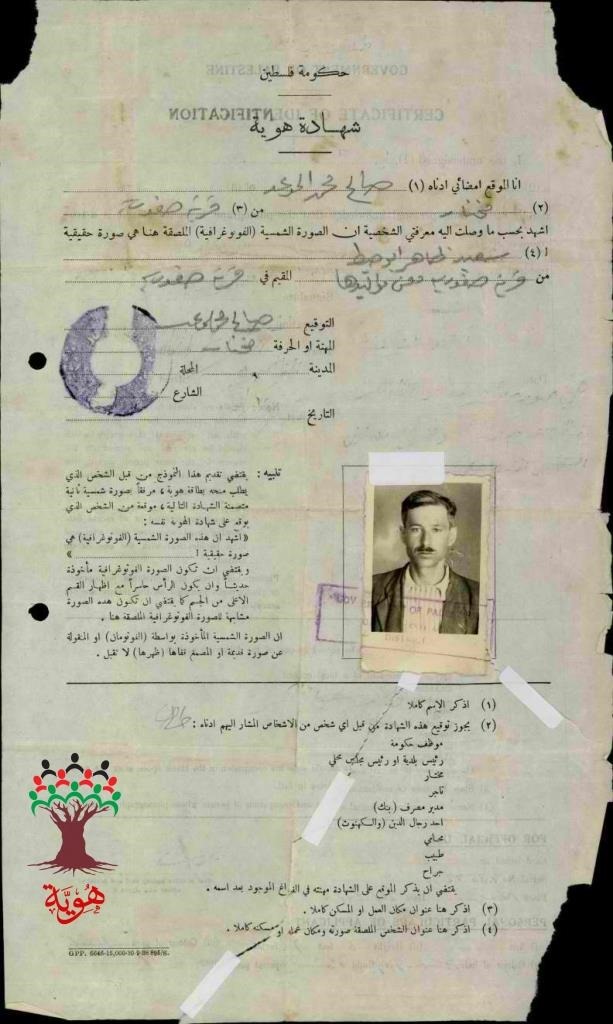 حكومة فلسطين
شهادة هوية
انا الموقع امضائي ادناه (١) صالح محمد
(٢) مختار من (٣) قرية صفورية
اشهد بحسب ما وصلت اليه معرفتي الشخصية ان الصورة الشمسية (الفوتوغرافية) الملصقة هنا هي صورة حقيقية
ا (٤) سعيد
من قرية صفورية ومن مواليدها المقيم في قرية صفورية
التوقيع صالح محمد
المهنة او الحرفة مختار
المدينة المحلة
الشارع
التاريخ
تنبيه : يقتضي تقديم هذا النموذج من قبل الشخص الذي
يطلب منحه بطاقة هوية ، مرفقاً بصورة شمسية ثانية
متضمنة الشهادة التالية ، موقعة من الشخص الذي
يوقع على شهادة الهوية نفسه :
« اشهد ان هذه الصورة الشمسية (الفوتوغرافية) هي
صورة حقيقية ا »
ويقتضي ان تكون الصورة الفوتوغرافية مأخوذة
حديثاً وان يكون الرأس حاسراً مع اظهار القسم
الاعلى من الجسم كما يقتضي ان تكون هذه الصورة
مشابهة للصورة الفوتوغرافية الملصقة هنا .
ان الصورة الشمسية المأخوذة بواسطة (الفوتومان) او المنقولة
عن صورة قديمة او المصمغ قفاها (ظهرها) لا تقبل .
GOV OF PAL
(١) اذكر الاسم كاملا
(٢) يجوز توقيع هذه الشهادة من قبل اي شخص من الاشخاص المشار اليهم ادناه :
موظف حكومة
رئيس بلدية او رئيس مجلس محلي
مختار
تاجر
مدير مصرف (بنك)
احد رجال الدين (والكهنوت)
محامي
طبيب
جراح
يقتضي ان يذكر الموقع على الشهادة مهنته في الفراغ الموجود بعد اسمه .
(٣) اذكر هنا عنوان مكان العمل او المسكن كاملا .
(٤) اذكر هنا عنوان الشخص الملصقة صورته ومكان عمله او مسكنه كاملا .
GPP. 6645-15,000-30-9-38 895/S.
هُويَّة